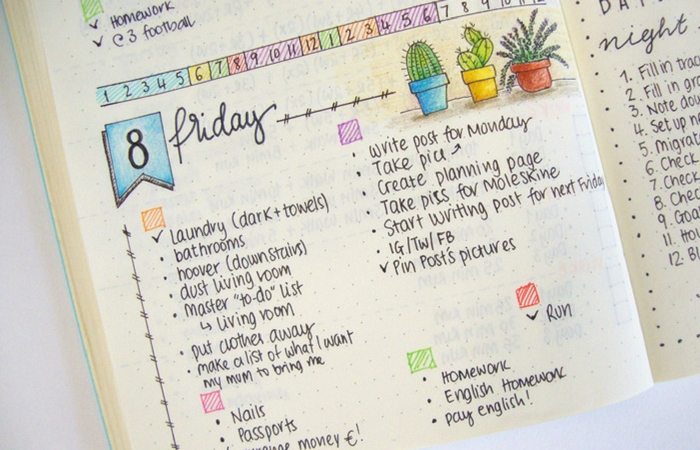 ✓ Homework
✓ C3 football
1 2 3 4 5 6 7 8 9 10 11 12 1 2 3 4 5 6 7 8 9 10 11 12
8 friday
• laundry (dark + towels)
• bathrooms
• hoover (downstairs)
• dust living room
• Master "to-do" list
↳ living room
• put clothes away
• make a list of what I want
my mum to bring me
• Nails
• Passports
money €!
• write post for Monday
• Take pics ↗
• Create planning page
• Take pics for Moleskine
• Start writing post for next Friday
• IG/TW/FB
✓ Pin Post's pictures
✓ Run
• Homework
• English Homework
• pay english!
night
1. Fill in
2. Fill in
3. Note
4. Set up
5.
6. Check
7. Check
8. Check
9.
10.
11.
12.